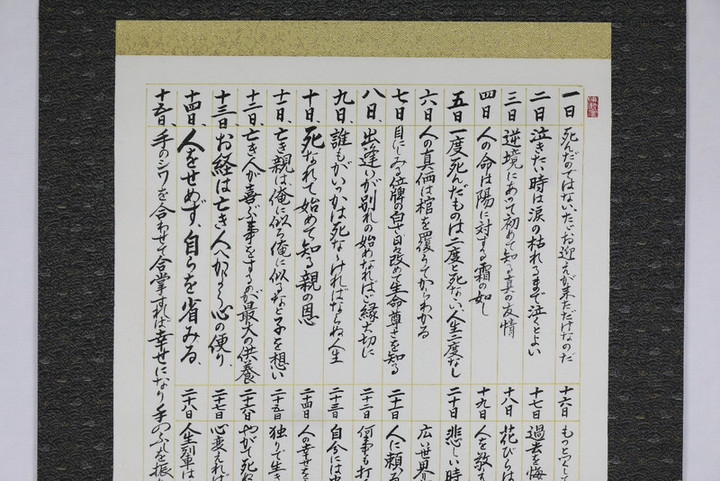 一日 死んだのではない、ただお迎えが来ただけなのだ
二日 泣きたい時は涙の枯れるまで泣くとよい
三日 逆境にあって初めて知る真の友情
四日 人の命は陽に対する霜の如し
五日 一度死んだものは二度と死なない、人生二度なし
六日 人の真価は棺を覆うてからわかる
七日 目にしみる位牌の白さ日改めて生命尊さを知る
八日、出逢いが別れの始めなればご縁大切に
九日、誰もがいつかは死ななければならぬ人生
十日、死なれて始めて知る親の恩
十一日、亡き親は俺に似ろ俺に似るなと子を想い
十二日、亡き人が喜ぶ事をするが最大の供養
十三日、お経は亡き人へかよう心の便り、
十四日、人をせめず、自らを省みる、
十五日、手のシワを合わせて合掌すれば幸せになり手のふしを振
十六日 もっとくして
十七日 過去を悔
十八日 花びらは
十九日 人を敬
二十日 悲しい時
広い世界
二十一日 人に頼
二十二日 何事も打
二十三日 自分には
二十四日 人の幸せを
二十五日 独りで生き
二十六日 やがて死ね
二十七日 心変えれば
二十八日 人生列車は